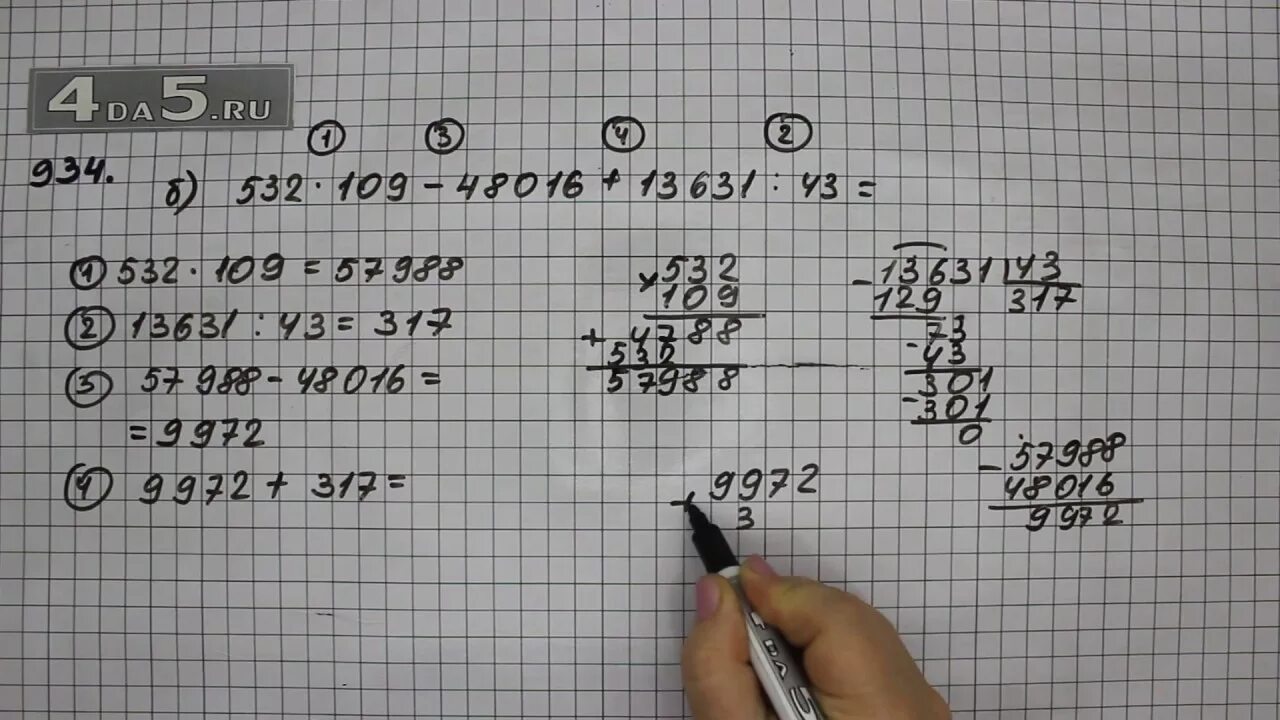 4DA5.RU
① ③ ④ ②
934.
б) 532 · 109 - 48016 + 13631 : 43 =
① 532 · 109 = 57988
② 13631 : 43 = 317
③ 57988 - 48016 =
= 9972
④ 9972 + 317 =
× 532
109
+ 4788
532
57988
- 13631 43
129 317
73
- 43
301
- 301
0
- 57988
48016
9972
+ 9972
3
4DA5